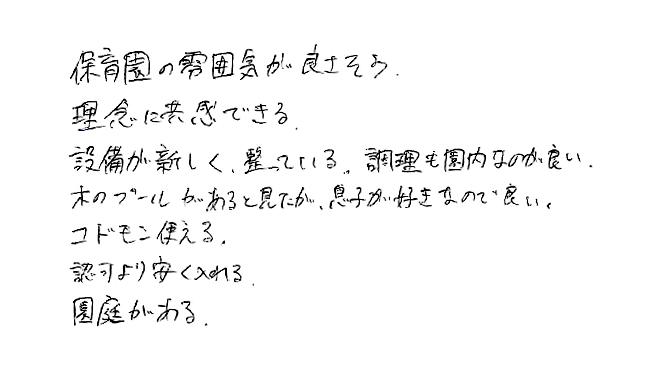 保育園の雰囲気が良さそう.
理念に共感できる.
設備が新しく、整っている。調理も園内なのが良い.
木のプールがあると見たが、息子が好きなので良い。
コドモン使える.
認可より安く入れる.
園庭がある.